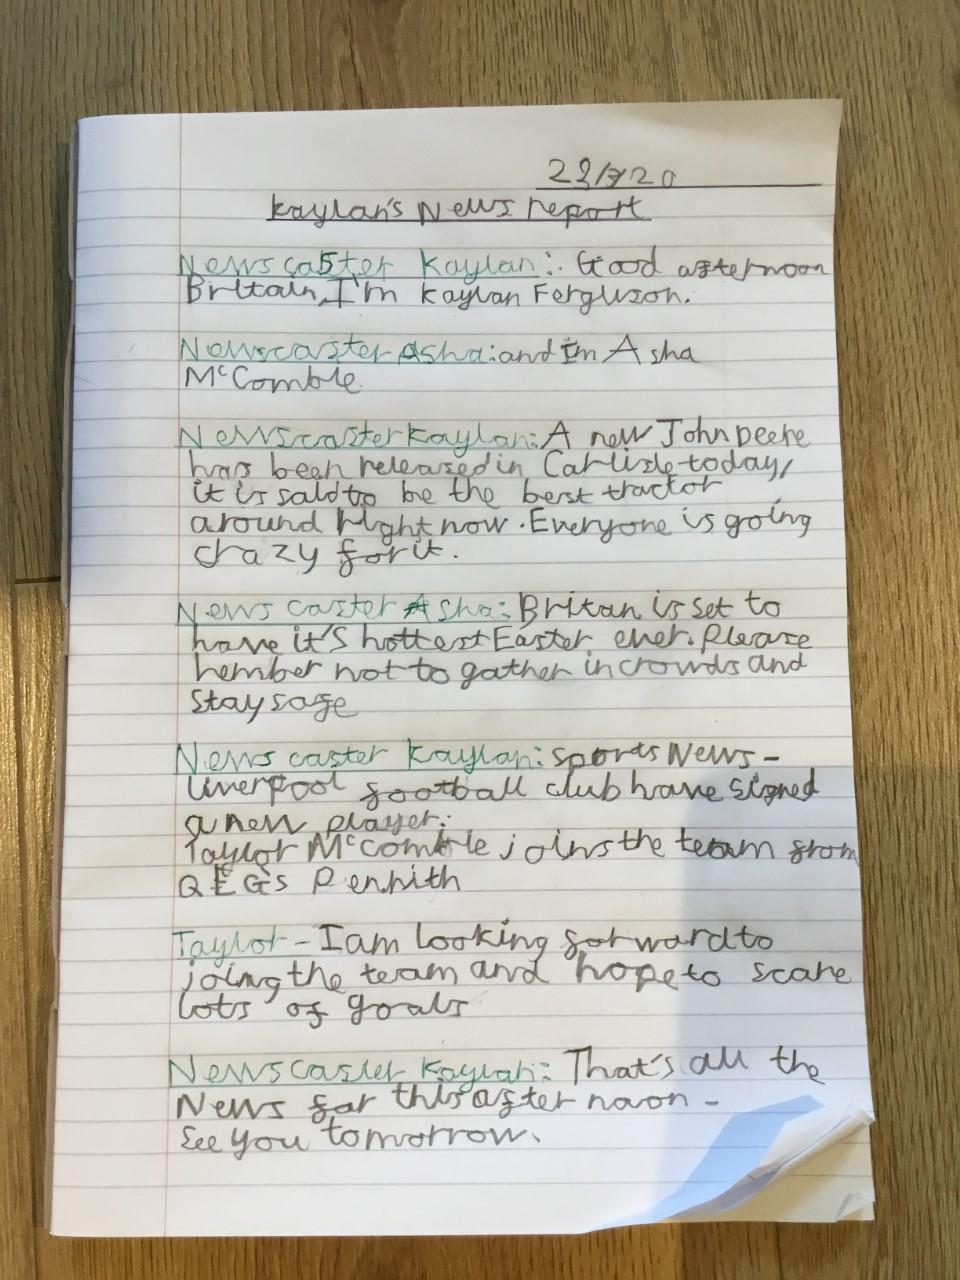 23/3/20
Kaylan's News report
Newscaster Kaylan: Good afternoon
Britain, I'm Kaylan Ferguson.
Newscaster Asha: and Im Asha
McComble.
Newscaster Kaylan: A new John Deere
has been released in Carlisle today,
it is said to be the best tractor
around right now. Everyone is going
crazy for it.
Newscaster Asha: Britan is set to
have it's hottest Easter ever. Please
rember not to gather in crowds and
stay safe
Newscaster Kaylan: sports News -
Liverpool football club have signed
a new player:
Taylor McComble joins the team from
QEGS Penrith
Taylor - I am looking forward to
joing the team and hope to score
lots of goals
Newscaster Kaylan: That's all the
News for this afternoon -
See you tomorrow.